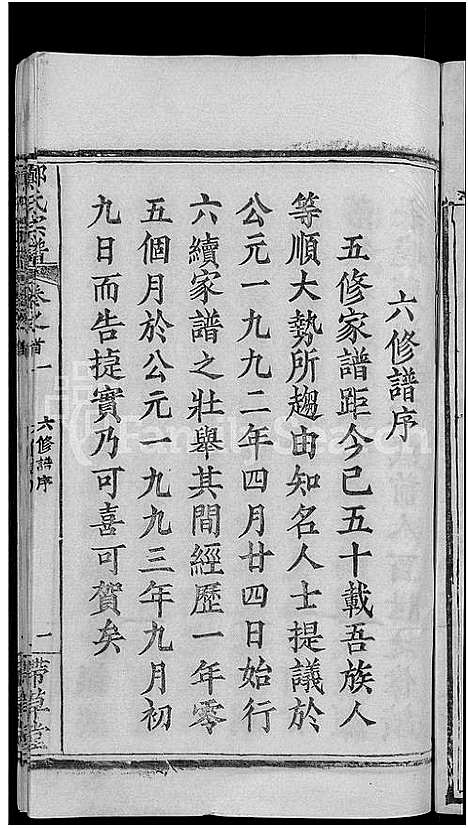 六修譜序
五修家譜距今已五十載吾族人
等順大勢所趨由知名人士提議於
公元一九九二年四月廿四日始行
六續家譜之壯舉其間經歷一年零
五個月於公元一九九三年九月初
九日而告捷實乃可喜可賀矣
鄭氏宗譜 卷之首一 六修譜序 一 帶草堂
FamilySearch